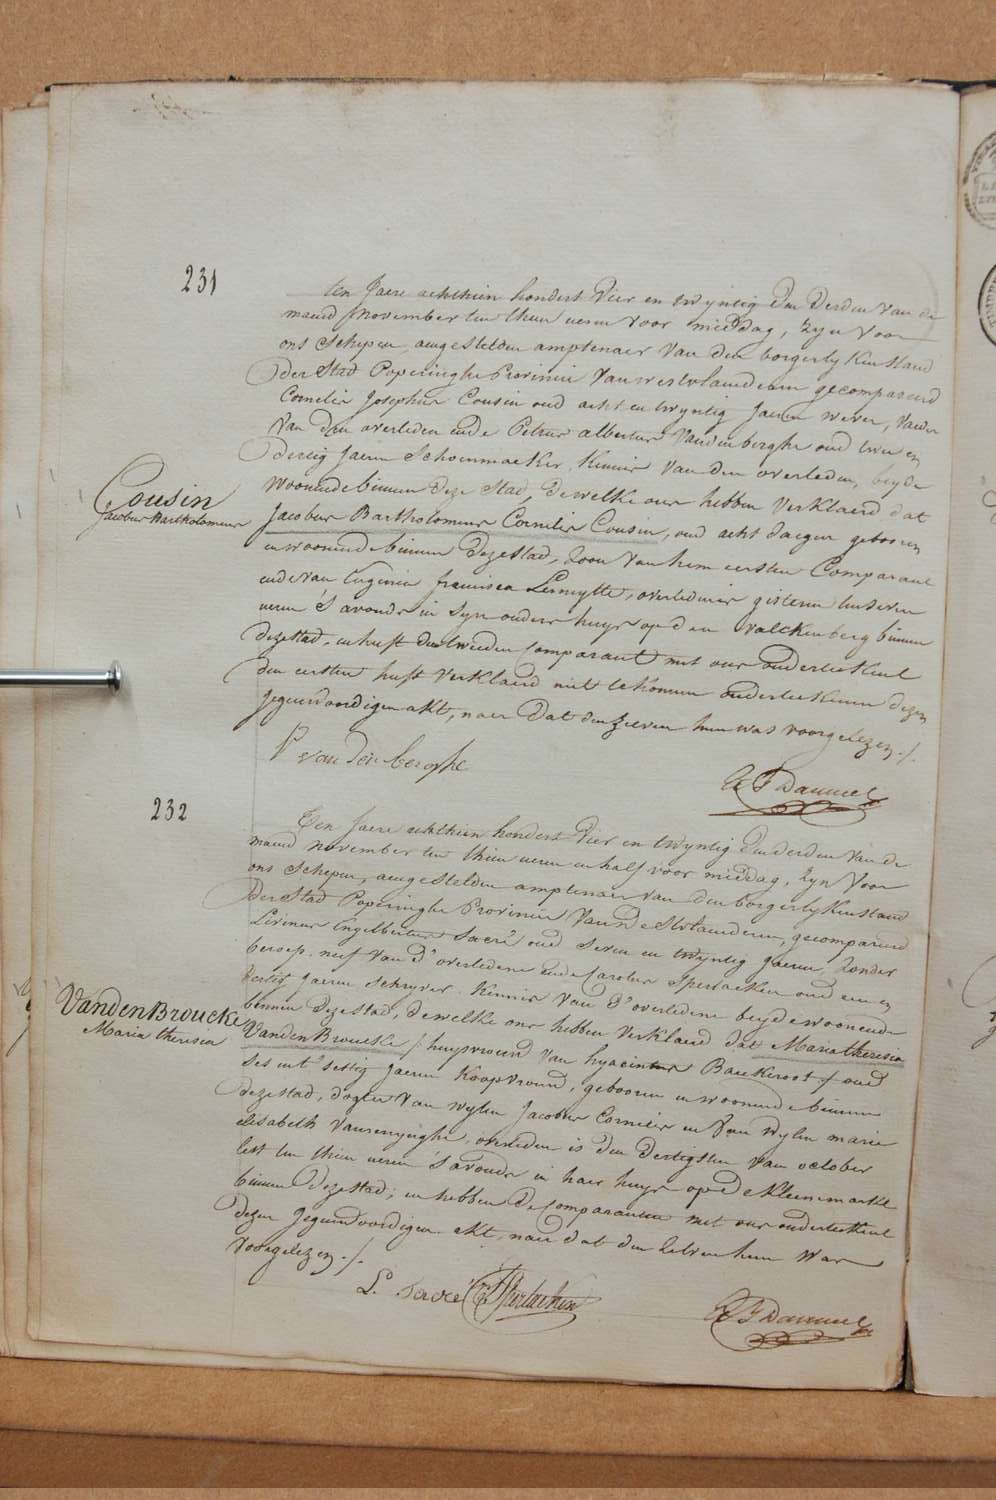 231
Ten Jaere achthien hondert Vier en twyntig den derden van de
maend November ten thien ueren voor middag, zyn voor
ons Schepen, aengestelden amptenaer van den borgerlyken stand
der Stad Poperinghe Provintie van westvlaenderen gecompareerd
Cornelis Josephus Cousin oud acht en twyntig Jaeren wever, vader
van den overleden ende Petrus albertus Vandenberghe oud twee en
dertig Jaeren Schoenmaeker, kennis van den overleden, beyde
woonende binnen deze Stad, dewelke ons hebben verklaerd dat
Cousin
Jacobus Bartholomeus
Jacobus Bartholomeus Cornelis Cousin, oud acht daegen geboren
en woonende binnen dezestad, zoon van hem eersten Comparant
ende van Eugenia francisca Lermytte, overleden is gisteren ten seven
ueren 's avonds in syn ouders huys op den valckenberg binnen
dezestad, en heeft den tweeden comparant met ons onderteekent
den eersten heeft verklaerd niet te konnen onderteekenen dezen
Jegenwoordigen akt, naer dat den zelven hun was voorgelezen ./.
P vandenberghe
232
Ten Jaere achthien hondert Vier en twyntig den derden van de
maend november ten thien ueren en half voor middag, zyn voor
ons Schepen, aengestelden amptenaer van den borgerlyken stand
der Stad Poperinghe Provintie van Westvlaenderen, gecompareerd
Livinus Engelbertus Sacré oud seven en twyntig Jaeren, zonder
beroep, neef van d'overledene ende Carolus Sperlaeken oud een en
dertig Jaeren schryver, kennis van d'overledene beyde woonende
binnen dezestad, dewelke ons hebben verklaerd dat Maria theresia
VandenBroucke
Maria theresia
VandenBroucke / huysvrouw van hyacintus Baeckeroot / oud
ses ent' sestig Jaeren koopvrouw, geboren en woonende binnen
dezestad, dogter van wylen Jacobus Cornelis en van wylen marie
elisabeth , overleden is den dertigsten van october
lest ten thien ueren 's avonds in haer huys op de kleenemarkt
binnen dezestad; en hebben de comparanten met ons onderteekent
dezen Jegenwoordigen akt, naer dat den zelven hun was
voorgelezen ./.
L. Sacré Sperlaeken